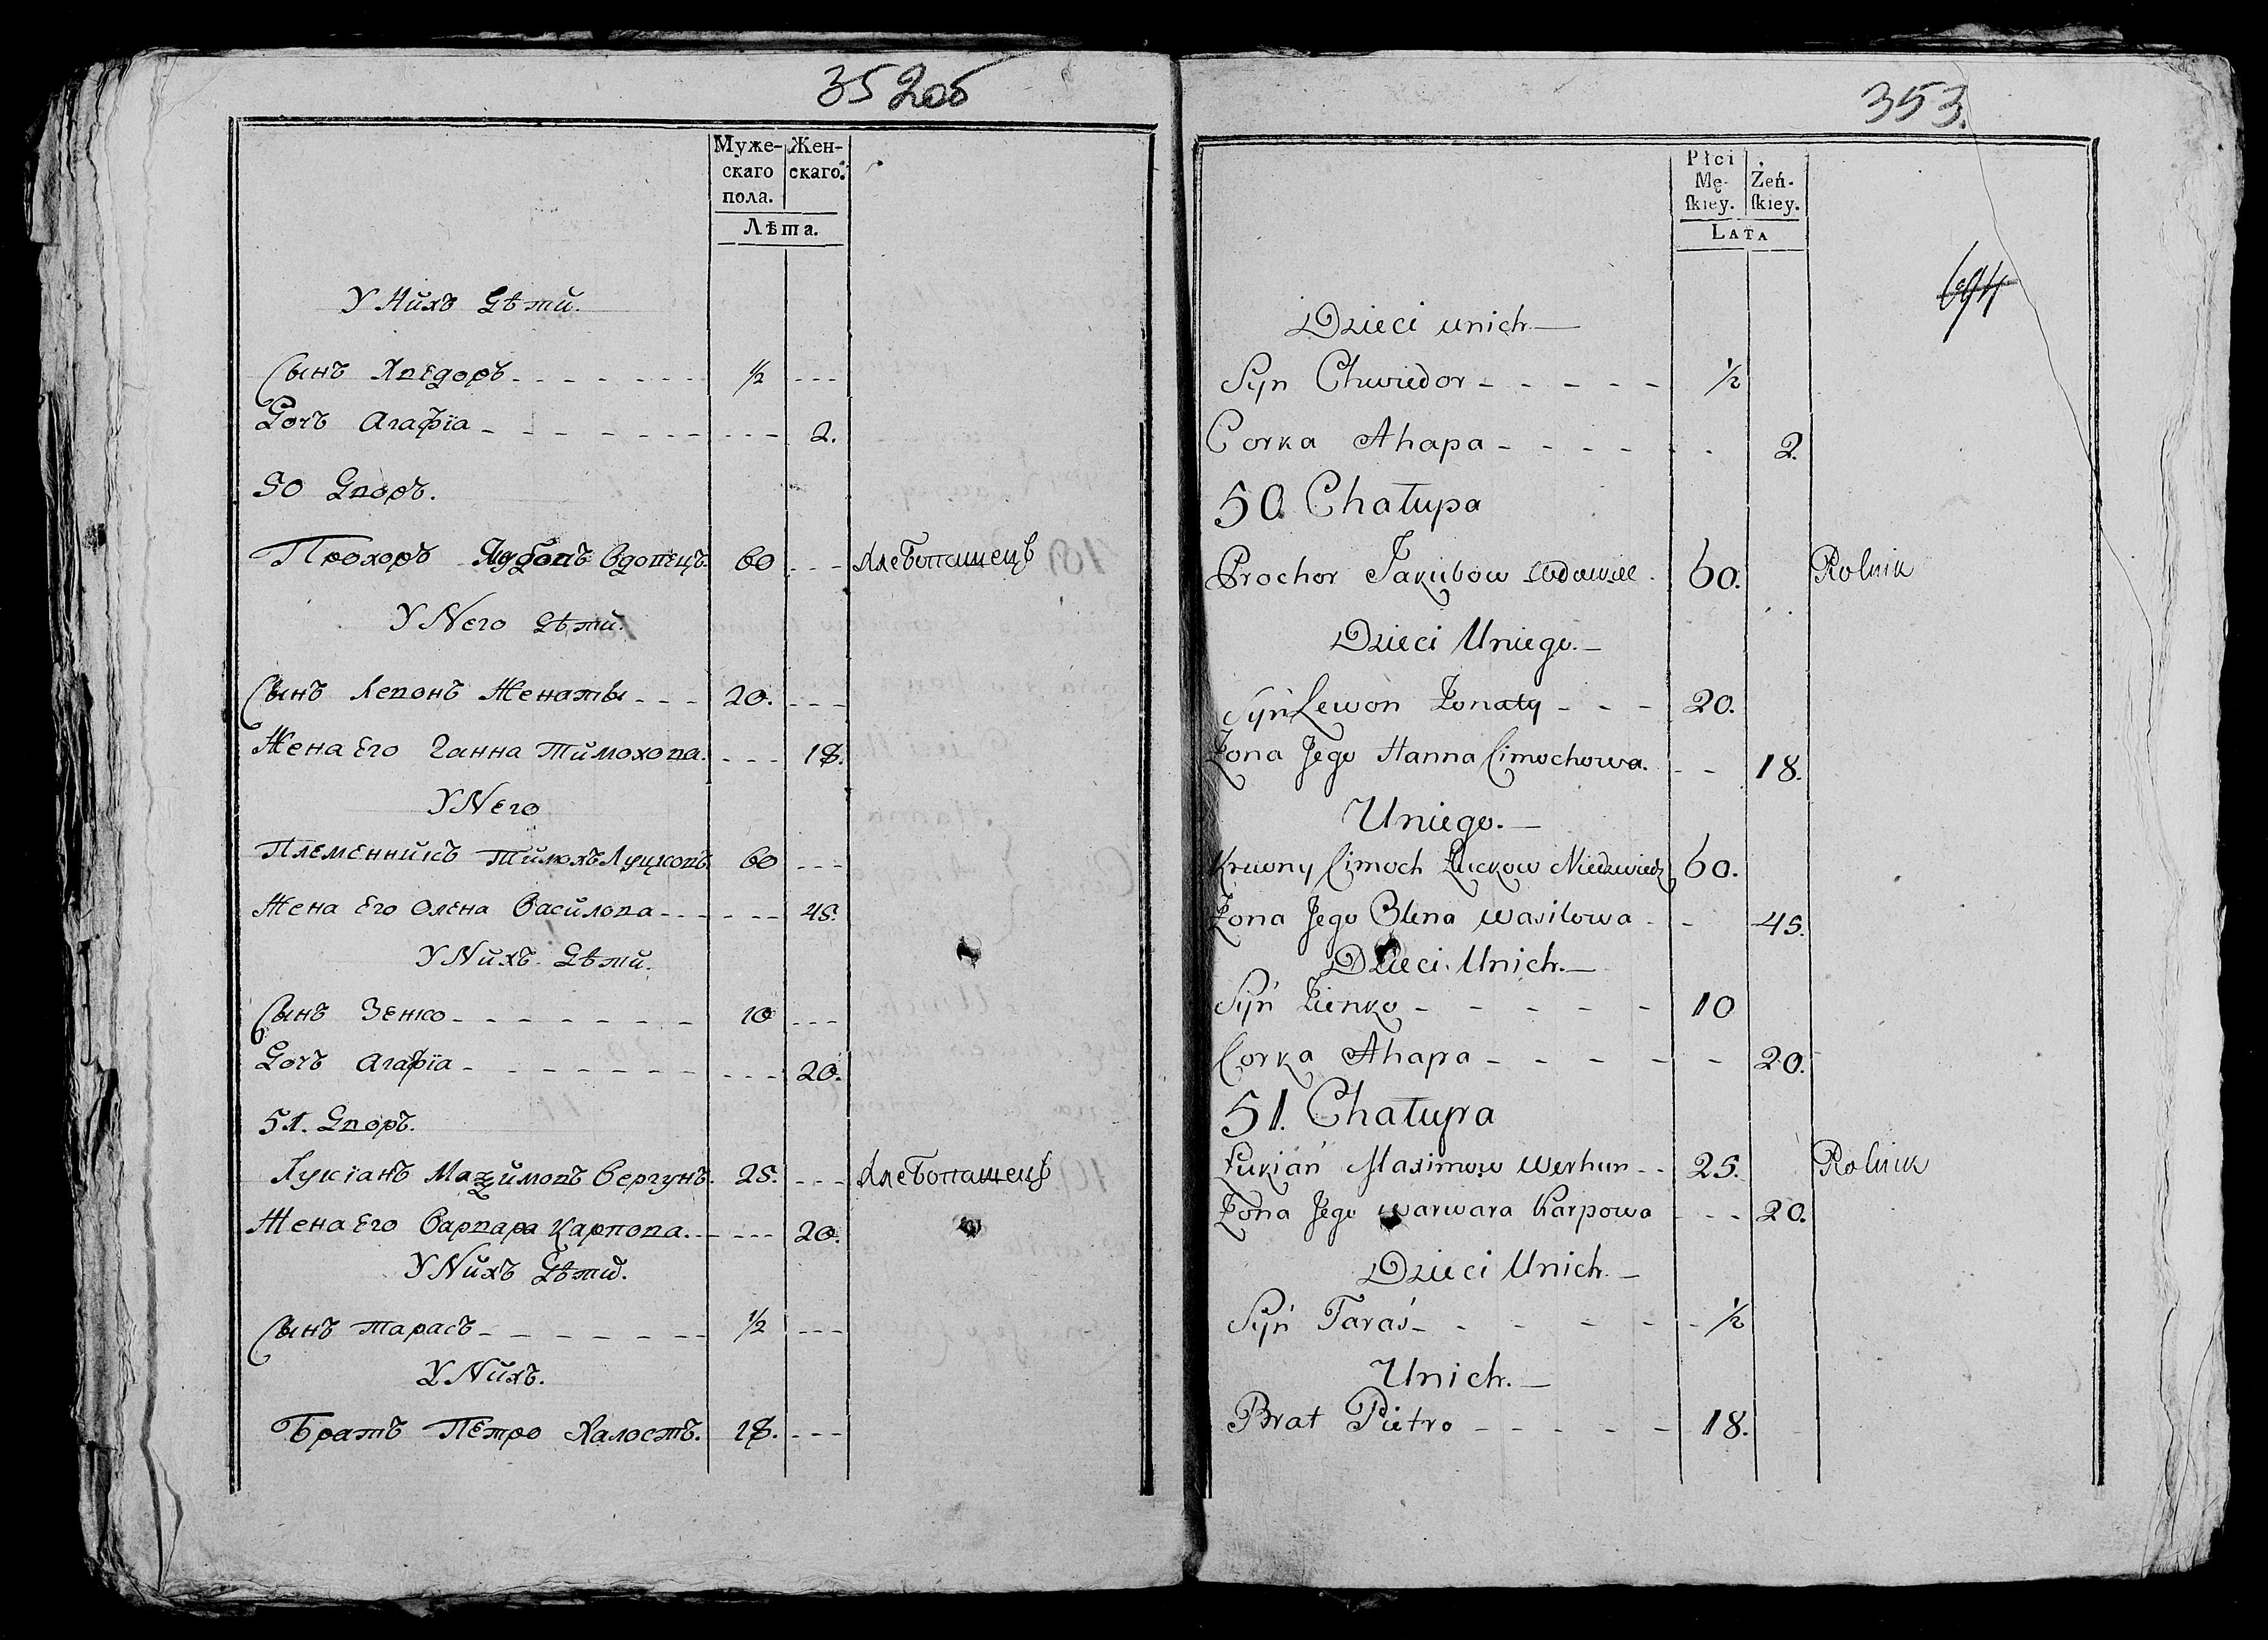 352об
Муже-
скаго
пола.
Жен-
скаго.
Лѣта.
У Нихъ Дѣти.
Сынъ Хведоръ 1/2
Дочъ Агафїа 2.
50 Дворъ.
Прохоръ Якубовъ Вдовецъ 60 Хлебопашецъ
У Него Дѣти.
Сынъ Левонъ Женаты 20.
Жена Его Ганна Тимохова. 18.
У Него
Племенникъ Тимохъ Луцковъ 60
Жена Его Олена Василова 45.
У Нихъ Дѣти.
Сынъ Зенко 10
Дочъ Агафїа 20.
51. Дворъ.
Лукіанъ Мазимовъ Вергунъ. 25. Хлебопашецъ
Жена Его Варвара Карпова. 20.
У Нихъ Дѣти.
Сынъ Тарасъ 1/2
У Нихъ.
Братъ Петро Халостъ. 18.
353.
Płci
Mę-
ſkiey.
Żeń-
ſkiey.
LATA
Dzieci unich
Syn Chwiedor 1/2
Corka Ahapa 2.
50. Chałupa
Prochor Jakubow Wdowiec 60. Rolnik
Dzieci Uniego.
Syn Lewon Żonaty 20.
Żona Jego Hanna Cimochowa. 18.
Uniego.
Krewny Cimoch Łuckow Niedzwiedz 60.
Żona Jego Olena Wasilowa 45.
Dzieci Unich.
Syń Zienko 10
Corka Ahapa 20.
51. Chałupa
Łukian Maximow Werhun 25. Rolnik
Żona Jego Warwara Karpowa 20.
Dzieci Unich.
Syń Taraś 1/2
Unich.
Brat Pietro 18.